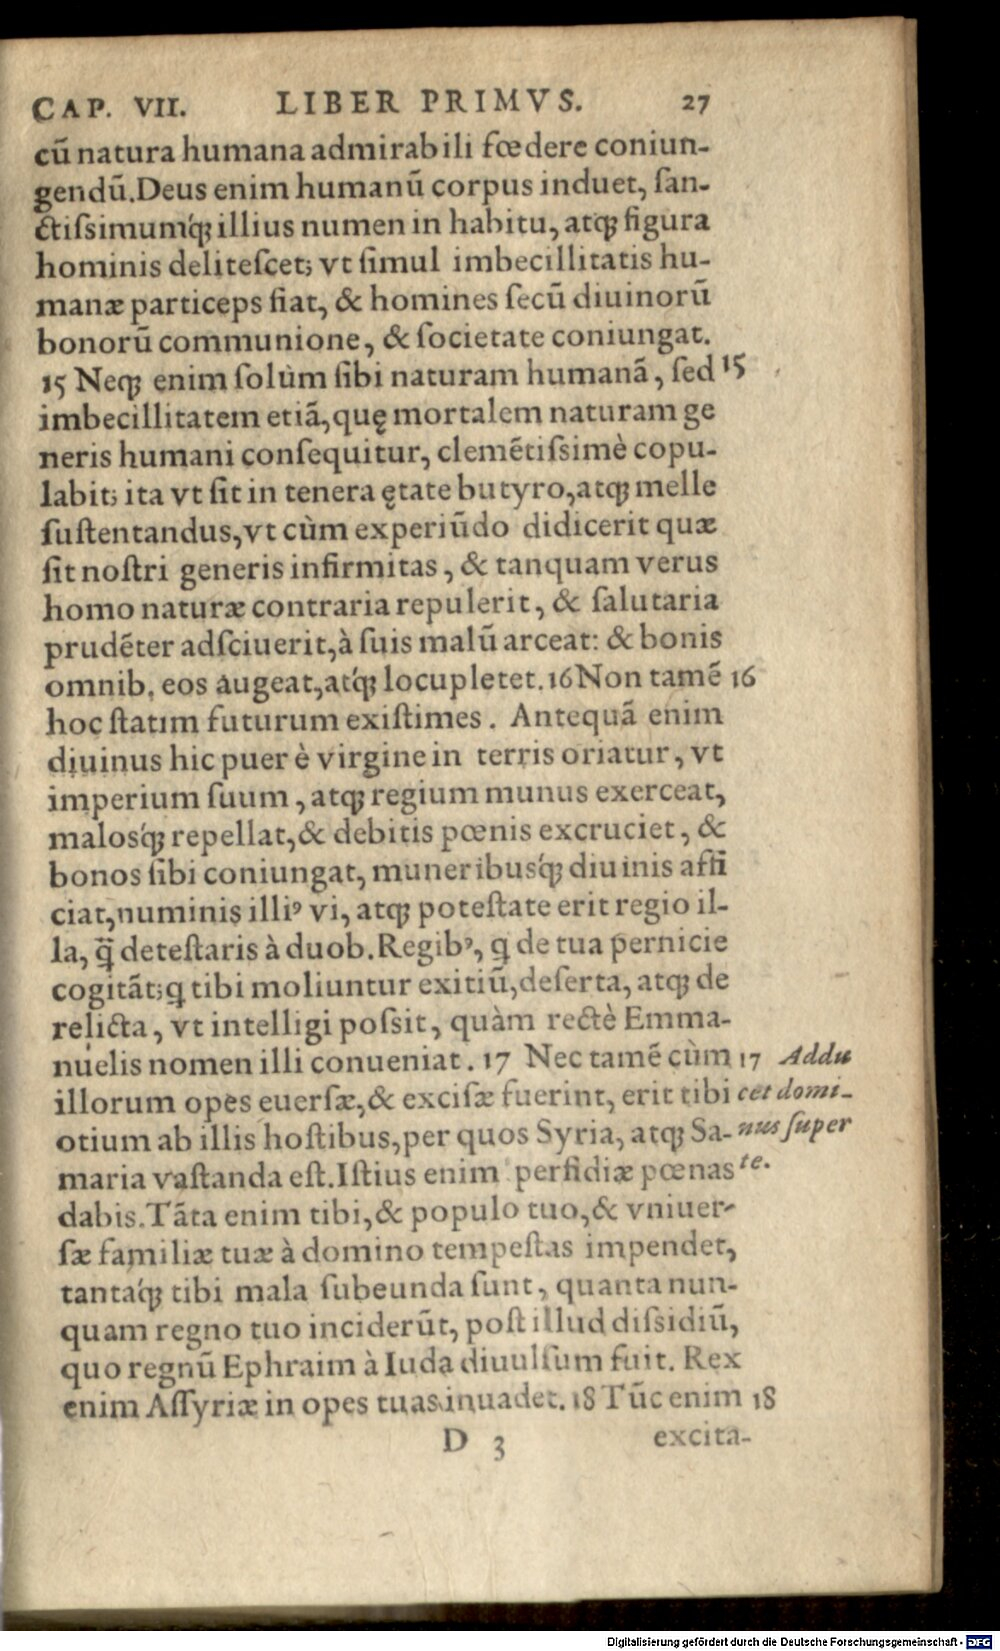 CAP. VII. LIBER PRIMVS. 27
cũ natura humana admirabili fœdere coniun-
gendũ. Deus enim humanũ corpus induet, ſan-
ctiſsimumq́ꝫ illius numen in habitu, atqꝫ figura
hominis deliteſcet; vt ſimul imbecillitatis hu-
manæ particeps fiat, & homines ſecũ diuinorũ
bonorũ communione, & ſocietate coniungat.
15 Neqꝫ enim ſolùm ſibi naturam humanã, ſed 15
imbecillitatem etiã, quę mortalem naturam ge
neris humani conſequitur, clemẽtiſsimè copu-
labit; ita vt ſit in tenera ętate butyro, atqꝫ melle
ſuſtentandus, vt cùm experiũdo didicerit quæ
ſit noſtri generis infirmitas, & tanquam verus
homo naturæ contraria repulerit, & ſalutaria
prudẽter adſciuerit, à ſuis malũ arceat: & bonis
omnib. eos augeat, atq́ꝫ locupletet. 16 Non tamẽ 16
hoc ſtatim futurum exiſtimes. Antequã enim
diuinus hic puer è virgine in terris oriatur, vt
imperium ſuum, atqꝫ regium munus exerceat,
malosq́ꝫ repellat, & debitis pœnis excruciet, &
bonos ſibi coniungat, muneribusq́ꝫ diuinis affi
ciat, numinis illiꝰ vi, atqꝫ poteſtate erit regio il-
la, q̃ deteſtaris à duob. Regibꝰ, q de tua pernicie
cogitãt; q tibi moliuntur exitiũ, deſerta, atqꝫ de
relicta, vt intelligi poſsit, quàm rectè Emma-
nuelis nomen illi conueniat. 17 Nec tamẽ cùm 17 Addu
illorum opes euerſæ, & exciſæ fuerint, erit tibi cet domi-
otium ab illis hoſtibus, per quos Syria, atqꝫ Sa- nus ſuper
maria vaſtanda eſt. Iſtius enim perfidiæ pœnas te.
dabis. Tãta enim tibi, & populo tuo, & vniuer-
ſæ familiæ tuæ à domino tempeſtas impendet,
tantaq́ꝫ tibi mala ſubeunda ſunt, quanta nun-
quam regno tuo inciderũt, poſt illud diſsidiũ,
quo regnũ Ephraim à Iuda diuulſum fuit. Rex
enim Aſſyriæ in opes tuas inuadet. 18 Tũc enim 18
D 3 excita-
Digitalisierung gefördert durch die Deutsche Forschungsgemeinschaft - DFG